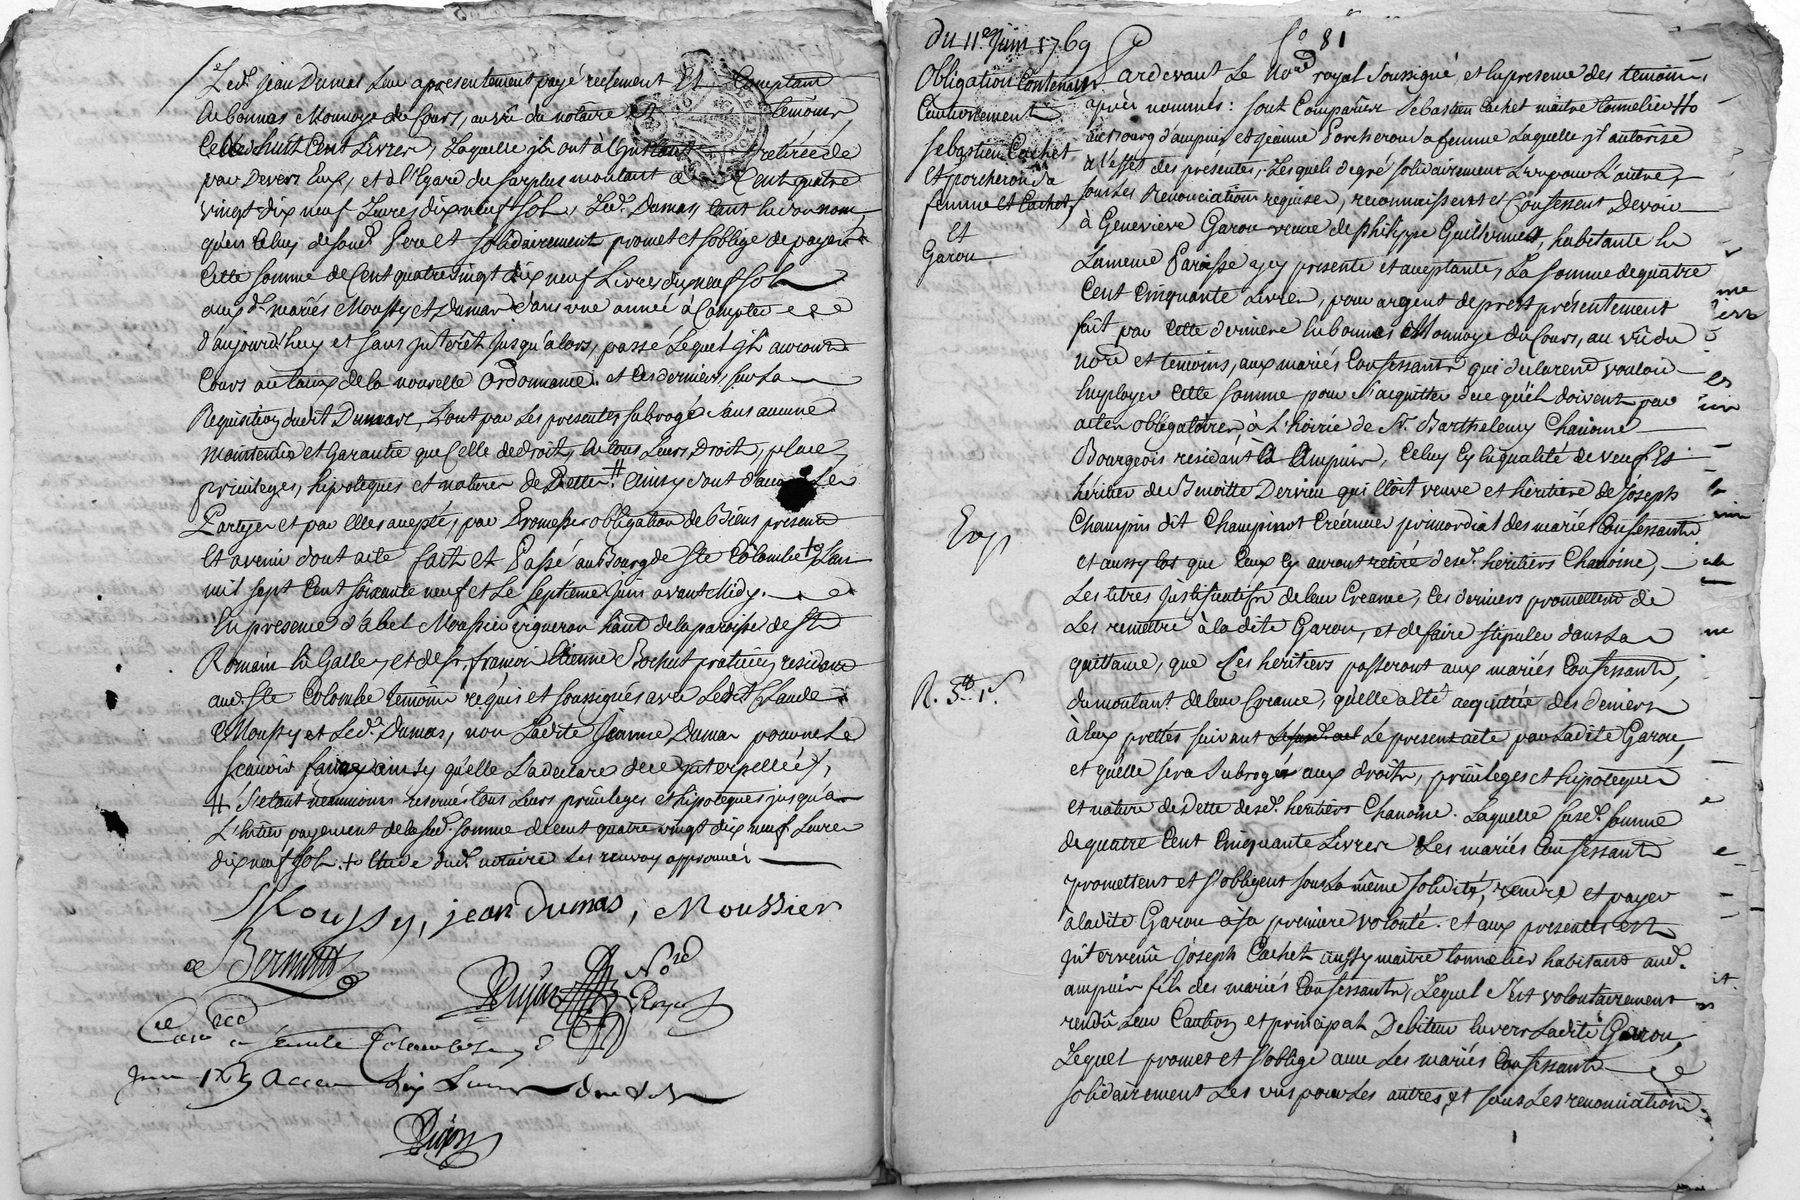 Led. jean Dumas Luy a presentement payé reelement Et Comptant
en bonnes Monnoye du Cours, au vû du notaire Et temoins
Celle de huit Cent Livres, Laquelle ils ont à l'instant retirée de
par Devers Eux, et à l'Egard du surplus montant à Cent quatre
vingt dix neuf Livres dix neuf sols, Led. Dumas tant en son nom
qu'en Celuy de son d. Pere et solidairement promet et s'oblige de payer
Cette somme de Cent quatre vingt dix neuf Livres dix neuf sols
auxd. mariés Moussy et Dumas dans une année à Compter
d'aujourd'huy et sans interêt jusqu'alors, passé Lequel ils auront
Cours au taux de la nouvelle Ordonnance. et Ces derniers, sur La
Requisition dudit Dumas, L'ont par Les presentes subrogé sans aucune
maintenüe et Garantie que Celle de droit, en tous Leurs Droits, place,
privileges, hipoteques et nature de Dette # Ainsy
Parties et par elles accepté, par Promesse obligation de Biens presents
Et avenir dont acte fait et Passé au Bourg de Ste Colombe + L'an
mil sept Cent soixante neuf et Le septième juin avant Midy.
En presence d'abel Moussier vigneron habt de la paroisse de St
Romain En Galles, et de sr. francois Etienne Brochut praticien residant
aud. Ste Colombe temoins requis et soussignés avec Ledit Claude
Moussy et Led. Dumas, non Ladite Jeanne Dumas pour ne Le
sçavoir faire ainsy qu'elle L'a declaré de ce interpellée,
# s'etant neanmoins reservés tous Leurs privileges et hipoteques jusqu'à
L'entier payement de lad. somme de Cent quatre vingt dix neuf Livres
dix neuf sols + Etude dud. notaire Les renvoys approuvés
Moussy, jean dumas, Moussier
Nore
Royal
à sainte Colombe
du 11e. Juin 1769
Obligation Contenant
Cautionnement
Sebastien Cachet
Et porcheron sa
femme et Cachet,
Et
Garou
Exp
R. 3# 1s
fo 81
Pardevant Le Nore. royal soussigné, et En presence des temoins,
après nommés: sont Comparûs Sebastien Cachet maitre tonnelier
au Bourg d'ampuis, et jeanne Porcheron sa femme Laquelle il autorise
à l'effet des présentes, Lesquels de gré solidairement L'un pour L'autre,
sous Les Renonciations requises, reconnoissent et Confessent Devoir
à Genevieve Garou veuve de philippe Guillermet, habitante En
La meme Paroisse icy presente et acceptante, La somme de quatre
Cent Cinquante Livres, pour argent de prest présentement
fait par Cette derniere En bonnes Monnoye du Cours, au vû du
Nore et temoins, aux mariés Confessants qui declarent vouloir
Employer Cette somme pour s'acquitter de ce qu'ils doivent par
actes obligatoires, à L'hoirie de Sr. Barthelemy Chanoine
Bourgeois residant à Ampuis, Celuy Cy En qualité de veuf Et
héritier de Benoitte Dervieu qui Etoit veuve et héritière de Joseph
Champin dit Champinot Créancier primordial des mariés Confessants
et aussy tot que Ceux Cy auront retiré desd. héritiers Chanoine,
Les titres justificatifs de leur Creance, Ces derniers promettent de
Les remettre à ladite Garou, et de faire stipuler dans La
quittance, que Ces heritiers passeront aux mariés Confessants,
du montant de leur Creance, qu'elle a eté acquittée des deniers
à Eux prettés suivant Le present acte par Ladite Garou,
et qu'elle sera subrogée aux droits, privileges et hipoteques
et nature de Dette desd. heritiers Chanoine. Laquelle susd. somme
de quatre Cent Cinquante Livres Les mariés Confessants
promettent et s'obligent sous La même solidité, rendre et payer
à ladite Garou à sa premiere volonté. et aux presentes est
intervenû joseph Cachet aussy maitre tonnelier habitant aud.
ampuis fils des mariés Confessants, Lequel s'est volontairement
rendû Leur Caution et principal Debiteur Envers Ladite Garou,
Lequel promet et s'oblige avec Les mariés Confessants
solidairement Les uns pour Les autres, et sous Les renonciations